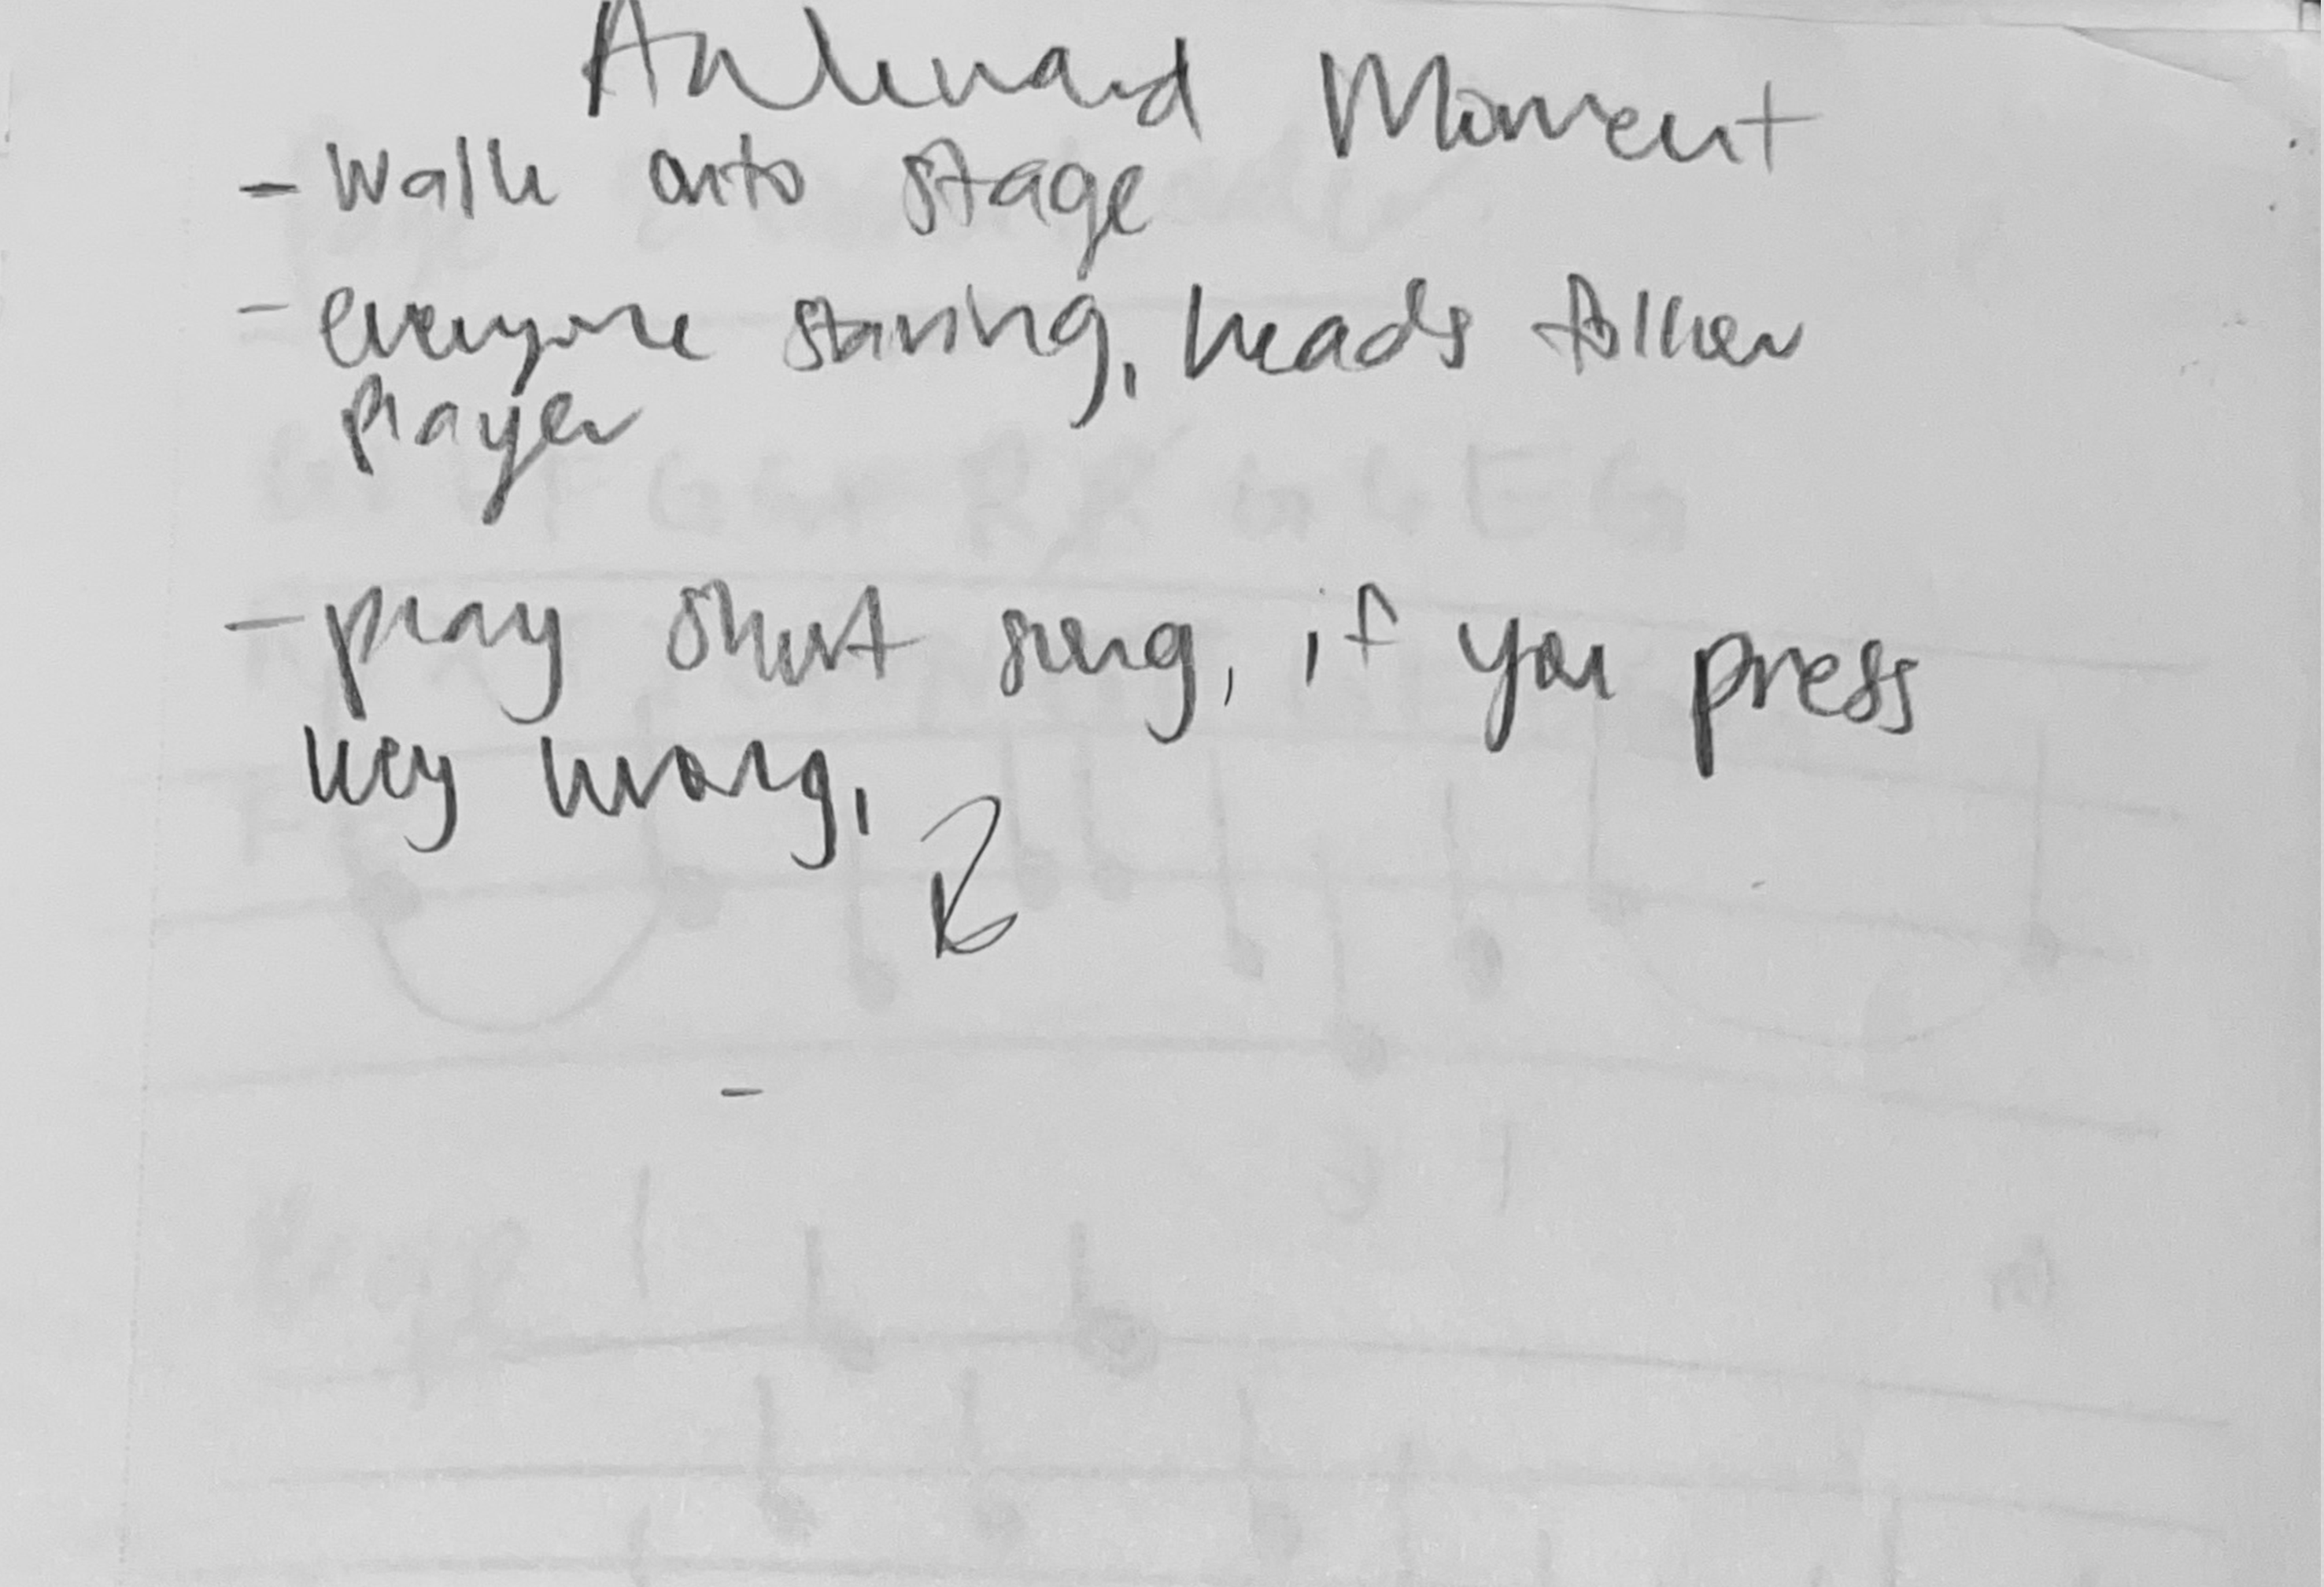 Awkward Moment
- Walk onto stage
- everyone staring, heads follow
player
- play short song, if you press
key wrong,